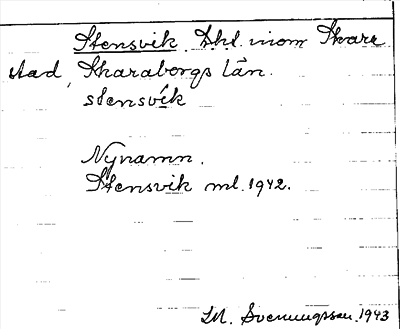 Stensvik Lht. inom Skara
stad, Skaraborgs län.
stensvík
Nynamn.
Stensvik ml. 1942.
M. Svenungsson. 1943